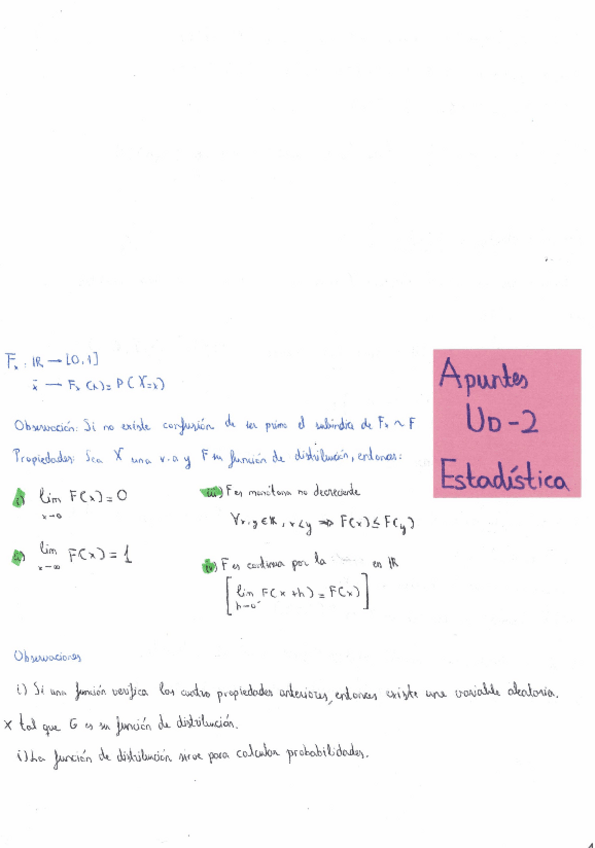 Fₓ : ℝ → [0,1]
x → Fₓ (x) = P(X=x)
Apuntes
UD-2
Estadística
Observación: Si no existe confusión de se prime el subíndice de Fₓ ~ F
Propiedades: Sea X una v.a y F su función de distribución, entonces:
i) lim F(x) = 0
x→0
ii) lim F(x) = 1
x→∞
iii) F es monótona no decreciente
∀x,y ∈ ℝ, x<y ⇒ F(x) ≤ F(y)
iv) F es continua por la en ℝ
[lim F(x+h) = F(x)]
h→0⁻
Observaciones
i) Si una función verifica las cuatro propiedades anteriores, entonces existe una variable aleatoria.
X tal que G es su función de distribución.
i) La función de distribución sirve para calcular probabilidades.